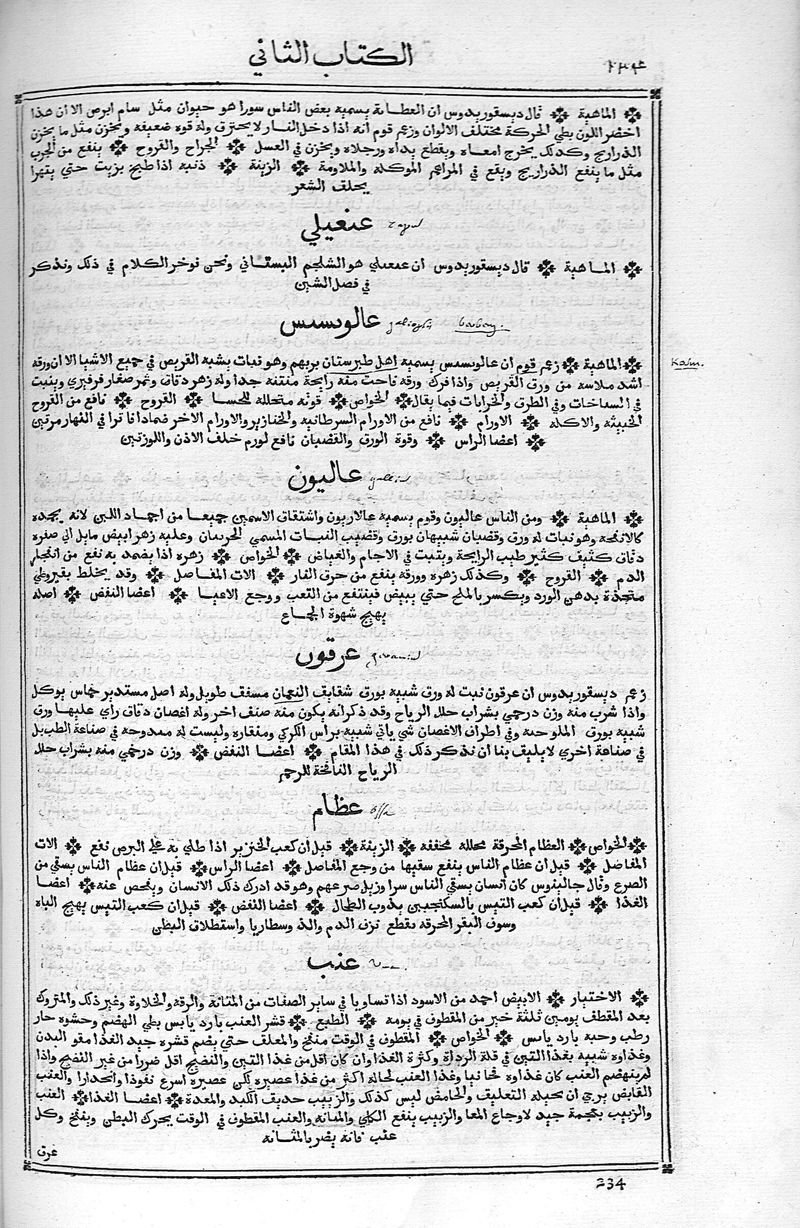 الكتاب الثاني
الماهية قال ديسقوريدوس ان العظاية يسميه بعض الناس سورا هو حيوان مثل سام ابرص الا ان هذا
اخضر اللون بطي الحركة مختلف الالوان وزعم قوم انه اذا دخل النار لا يحترق وله قوة ضعيفه ويخزن مثل ما يخزن
الذراريج وكذلك يخرج امعاه ويقطع يداه ورجلاه ويخزن في العسل الجراح والقروح ينفع من الجرب
مثل ما ينفع الذراريج ويقع في المراهم الموكله والملاومة الزينة ذنبه اذا طبخ بزيت حتي يتهرا
يحلق الشعر
عنعيلي
الماهية قال ديسقوريدوس ان عنعيلي هو الشلجم البستاني ونحن نوخر الكلام في ذلك ونذكر
في فصل الشين
عالوىسىس
الماهية زعم قوم ان عالوىسىس يسميه اهل طبرستان بربهم وهو نبات يشبه القريص في جميع الاشيا الا ان ورقه
اشد ملاسه من ورق القريص واذا فرك ورقه فاحت منه رايحة منتنه جدا وله زهر دقاق وثمر صغار فرفيري وينبت
في السباخات وفي الطرق والخرابات فيما يقال الخواص قوته محللة للحسا القروح نافع من القروح
الخبيثه والاكله الاورام نافع من الاورام السرطانيه والخنازير والاورام الاخر ضمادا فاترا في النهار مرتين
اعضا الراس وقوة الورق والقضبان نافع لورم خلف الاذن واللوزتين
عاليون
الماهية ومن الناس عاليون وقوم يسميه عالاريون واشتقاق الاسمين جميعا من اجماد اللبن لانه يجمده
كالانفحة وهو نبات له ورق وقضبان شبيهان بورق وقضيب النبات المسمي وعليه زهر ابيض مايل الي صفره
دقاق كثيف كثير طيب الرايحة وينبت في الاجام والغياض الخواص زهره اذا يضمد به نفع من انفجار
الدم القروح وكذلك زهره وورقه ينفع من حرق النار الات المفاصل وقد يخلط بقيروطي
متخذة بدهن الورد ويكسر بالملح حتي يبيض فينتفع من التعب ووجع الاعيا اعضا النفض اصله
يهيج شهوة الجماع
عرقون
زعم ديسقوريدوس ان عرقون نبت له ورق شبيه بورق شقايق النعمان مسقف طويل وله اصل مستدير يوكل
واذا شرب منه وزن درخمي بشراب حلل الرياح وقد ذكر انه يكون منه صنف اخر وله اغصان دقاق راي عليها ورق
شبيه بورق الملوخيه وفي اطراف الاغصان شي ياتي شبيه براس الكركي ومنقاره وليست له ممدوحه في صناعة الطب بل
في صناعة اخري لا يليق بنا ان نذكر ذلك في هذا المقام اعضا النفض وزن درخمي منه بشراب حلل
الرياح النافخة للرحم
عظام
الخواص العظام المحرقة محلله مجففه الزينة قيل ان كعب الخنزير اذا طلي به علي البرص نفع الات
المفاصل قيل ان عظام الناس ينفع سقيها من وجع المفاصل اعضا الراس قيل ان عظام الناس يسقي من
الصرع وقال جالينوس كان انسان يسقي الناس سرا ويزيل صرعهم وهو قد ادرك ذلك الانسان ويفحص عنه اعضا
الغذا قيل ان كعب التيس بالسكنجبين يذوب الطحال اعضا النفض قيل ان كعب التيس يهيج الباه
وسوف البقر المحرقه يقطع نزف الدم والذوسطاريا واستطلاق البطن
عنب
الاختيار الابيض احمد من الاسود اذا تساويا في ساير الصفات من المتانة والرقه والحلاوة وغير ذلك والمتروك
بعد المقطف يومين ثلثة خير من المقطوف في يومه الطبع قشر العنب بارد يابس بطي الهضم وحشوه حار
رطب وحبه بارد يابس الخواص المقطوف في الوقت منفخ والمعلف حتي يضم قشره جيد الغذا مقو البدن
وغذاوه شبيه بغذا التين في قلة الرداة وكثرة الغذا وان كان اقل من غذا التين والنضيج اقل ضررا من غير النضيج واذا
لم ينهضم العنب كان غذاوه نيا وغذا العنب لحاله اكثر من غذا عصيره لكن عصيره اسرع نفوذا وانحدارا والعنب
القابض يرجي ان يحيله التعليق والحامض ليس كذلك والزبيب صديق الكبد والمعدة اعضا الغذا العنب
والزبيب بعجمه جيد لاوجاع المعا والزبيب ينفع الكلي والمثانه والعنب المقطوف في الوقت يحرك البطن وينفخ وكل
عنب فانه يضر بالمثانه
عرق
234